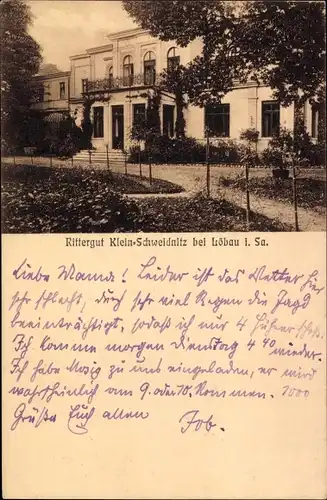 Rittergut Klein-Schweidnitz bei Löbau i. Sa.
Liebe Mama! Leider ist das Wetter hier
sehr schlecht, durch sehr viel Regen die Jagd
beeinträchtigt, sodaß ich nur 4 Hühner schoß.
Ich komme morgen Dienstag 4 40 wieder.
Ich habe Mosig zu uns eingeladen, er wird
wahrscheinlich am 9. oder 10. kommen. 1000
Grüße Euch allen
Job.